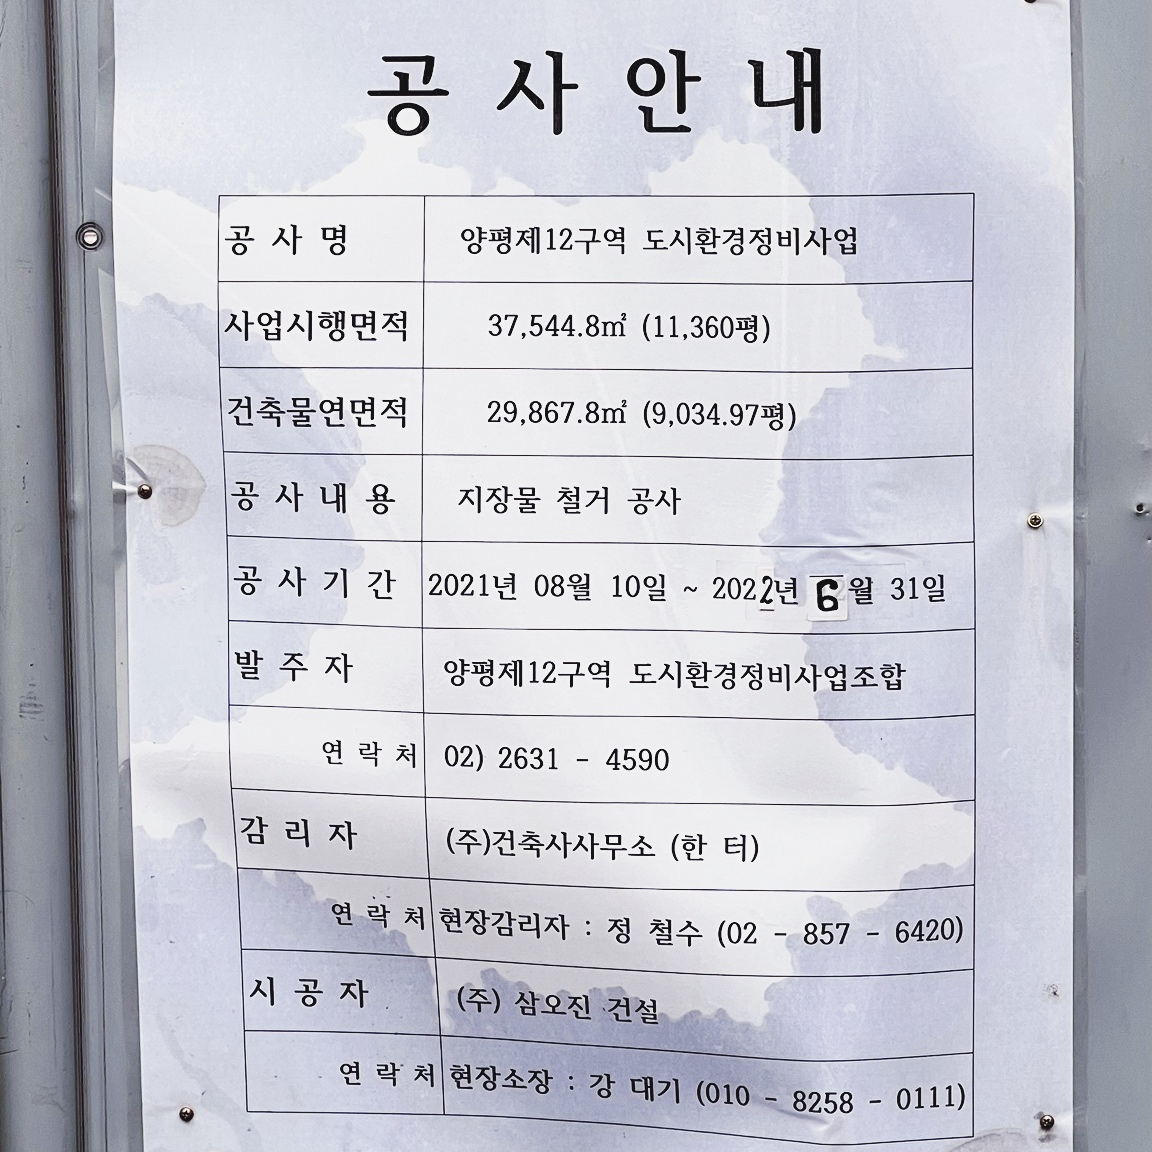 공 사 안 내
공 사 명 양평제12구역 도시환경정비사업
사업시행면적 37,544.8㎡ (11,360평)
건축물연면적 29,867.8㎡ (9,034.97평)
공 사 내 용 지장물 철거 공사
공 사 기 간 2021년 08월 10일 ~ 2022년 6월 31일
발 주 자 양평제12구역 도시환경정비사업조합
연 락 처 02) 2631 - 4590
감 리 자 (주)건축사사무소 (한 터)
연 락 처 현장감리자 : 정 철수 (02 - 857 - 6420)
시 공 자 (주) 삼오진 건설
연 락 처 현장소장 : 강 대기 (010 - 8258 - 0111)